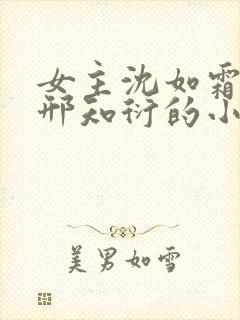 女主沈如霜
邢知衍的小
美男如雪